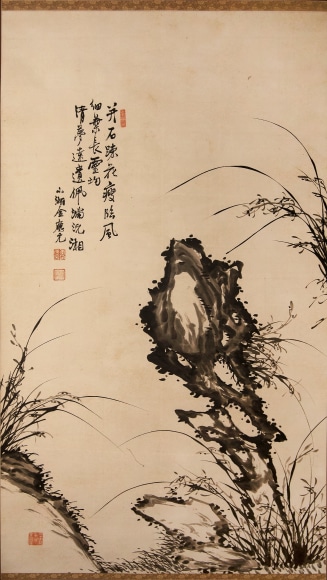 并石疎花瘦臨風
細葉長靈均
清夢遠遺佩滿沅湘
小湖金應元